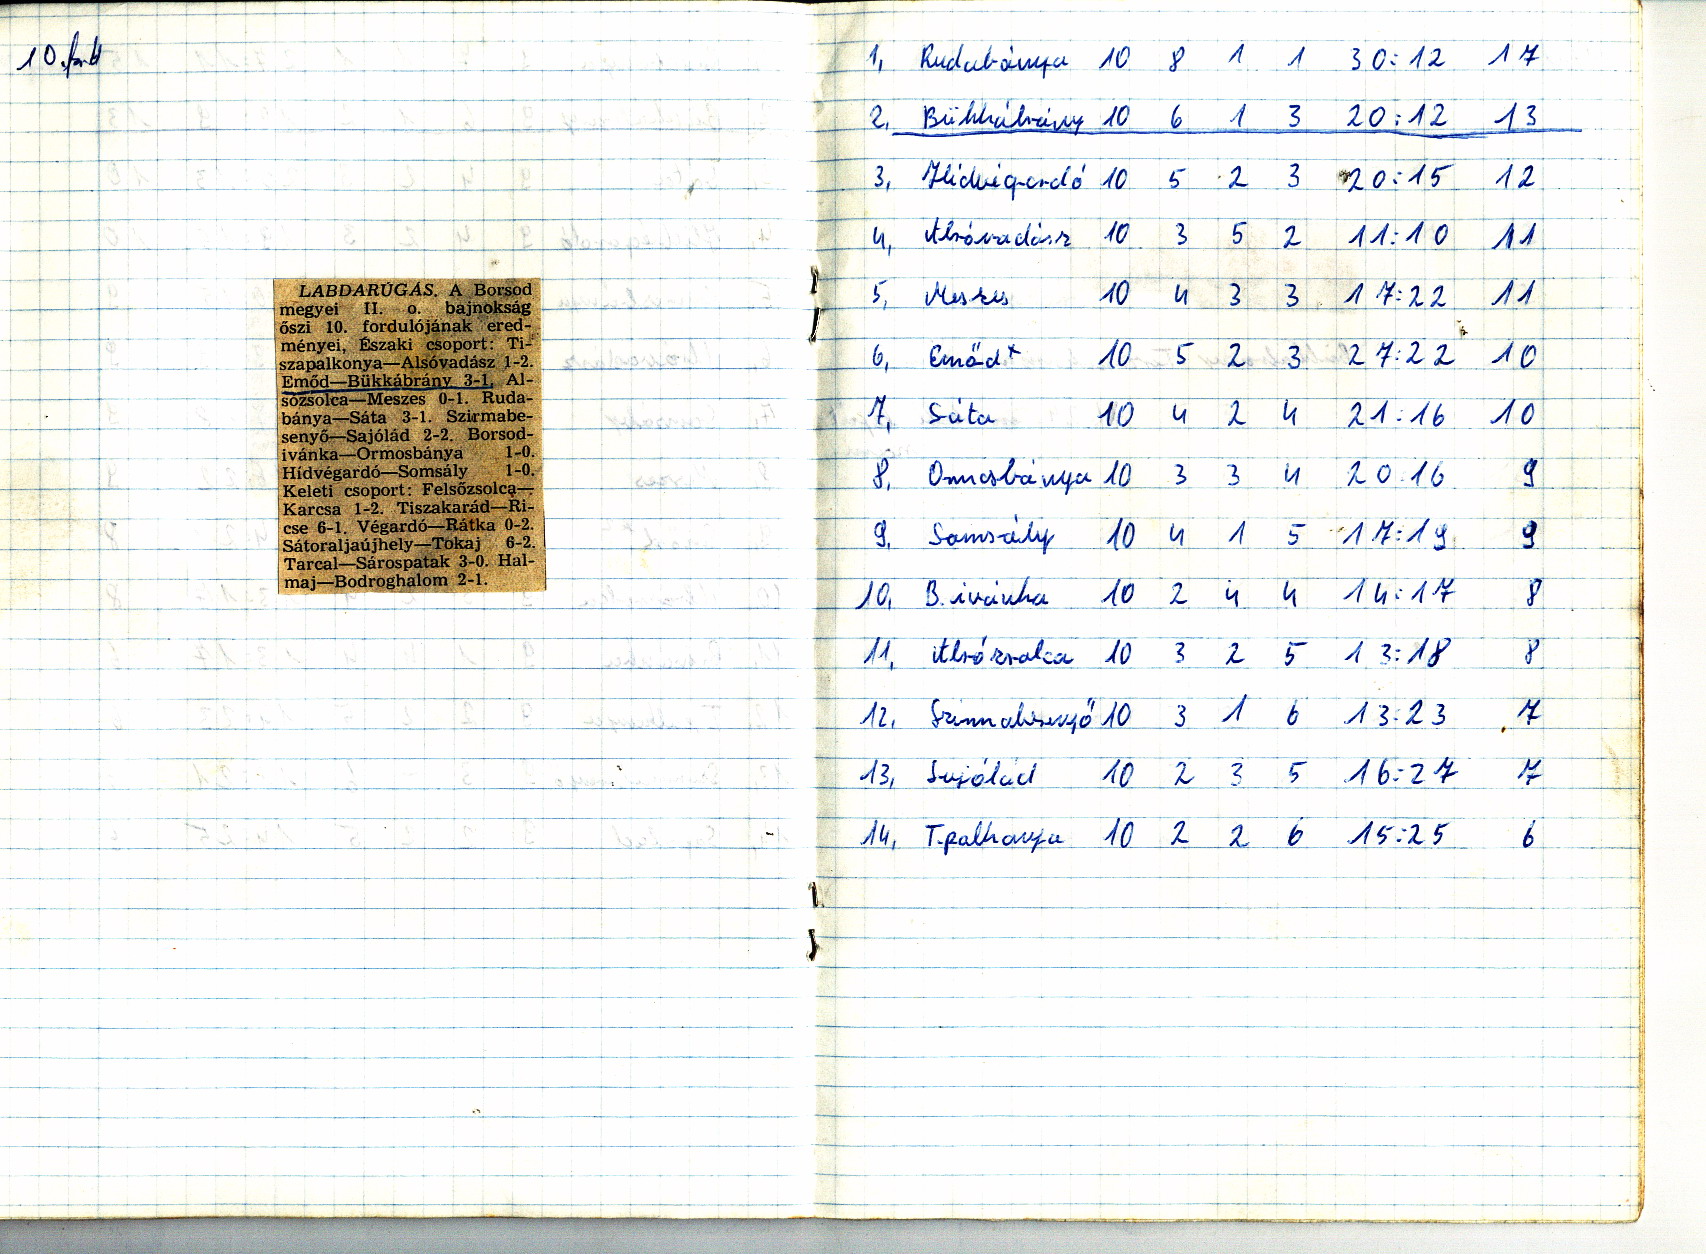 10. ford
LABDARÚGÁS. A Borsod
megyei II. o. bajnokság
őszi 10. fordulójának ered-
ményei, Északi csoport: Ti-
szapalkonya—Alsóvadász 1-2.
Emőd—Bükkábrány 3-1. Al-
sózsolca—Meszes 0-1. Ruda-
bánya—Sáta 3-1. Szirmabe-
senyő—Sajólád 2-2. Borsod-
ivánka—Ormosbánya 1-0.
Hídvégardó—Somsály 1-0.
Keleti csoport: Felsőzsolca—
Karcsa 1-2. Tiszakarád—Ri-
cse 6-1. Végardó—Rátka 0-2.
Sátoraljaújhely—Tokaj 6-2.
Tarcal—Sárospatak 3-0. Hal-
maj—Bodroghalom 2-1.
1, Rudabánya 10 8 1 1 30:12 17
2, Bükkábrány 10 6 1 3 20:12 13
3, Hidvégardó 10 5 2 3 20:15 12
4, Alsóvadász 10 3 5 2 11:10 11
5, Meszes 10 4 3 3 17:22 11
6, Emőd+ 10 5 2 3 27:22 10
7, Sáta 10 4 2 4 21:16 10
8, Ormosbánya 10 3 3 4 20:16 9
9, Somsály 10 4 1 5 17:19 9
10, B.ivánka 10 2 4 4 14:17 8
11, Alsózsolca 10 3 2 5 13:18 8
12, Szirmabesenyő 10 3 1 6 13:23 7
13, Sajólád 10 2 3 5 16:27 7
14, T.palkonya 10 2 2 6 15:25 6